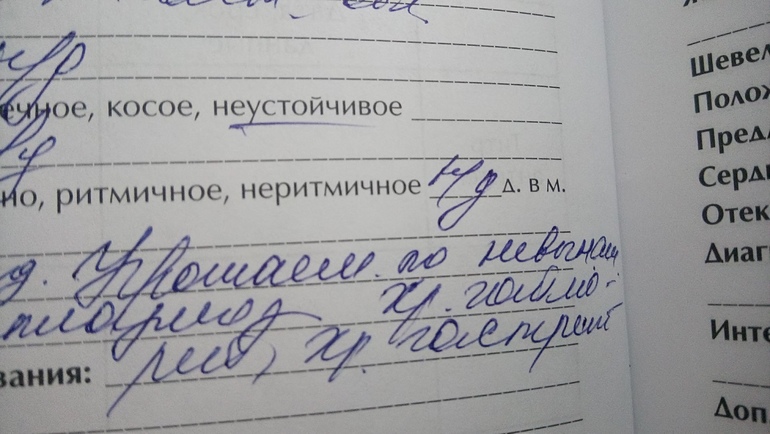 ечное, косое, неустойчивое
но, ритмичное, неритмичное д. в м.
Угрожаем. по невынаш
хр. гаймо-
рит, хр. гастрит
вания:
Шевел
Полож
Предл
Серд
Отек
Диаг
Инте
Доп